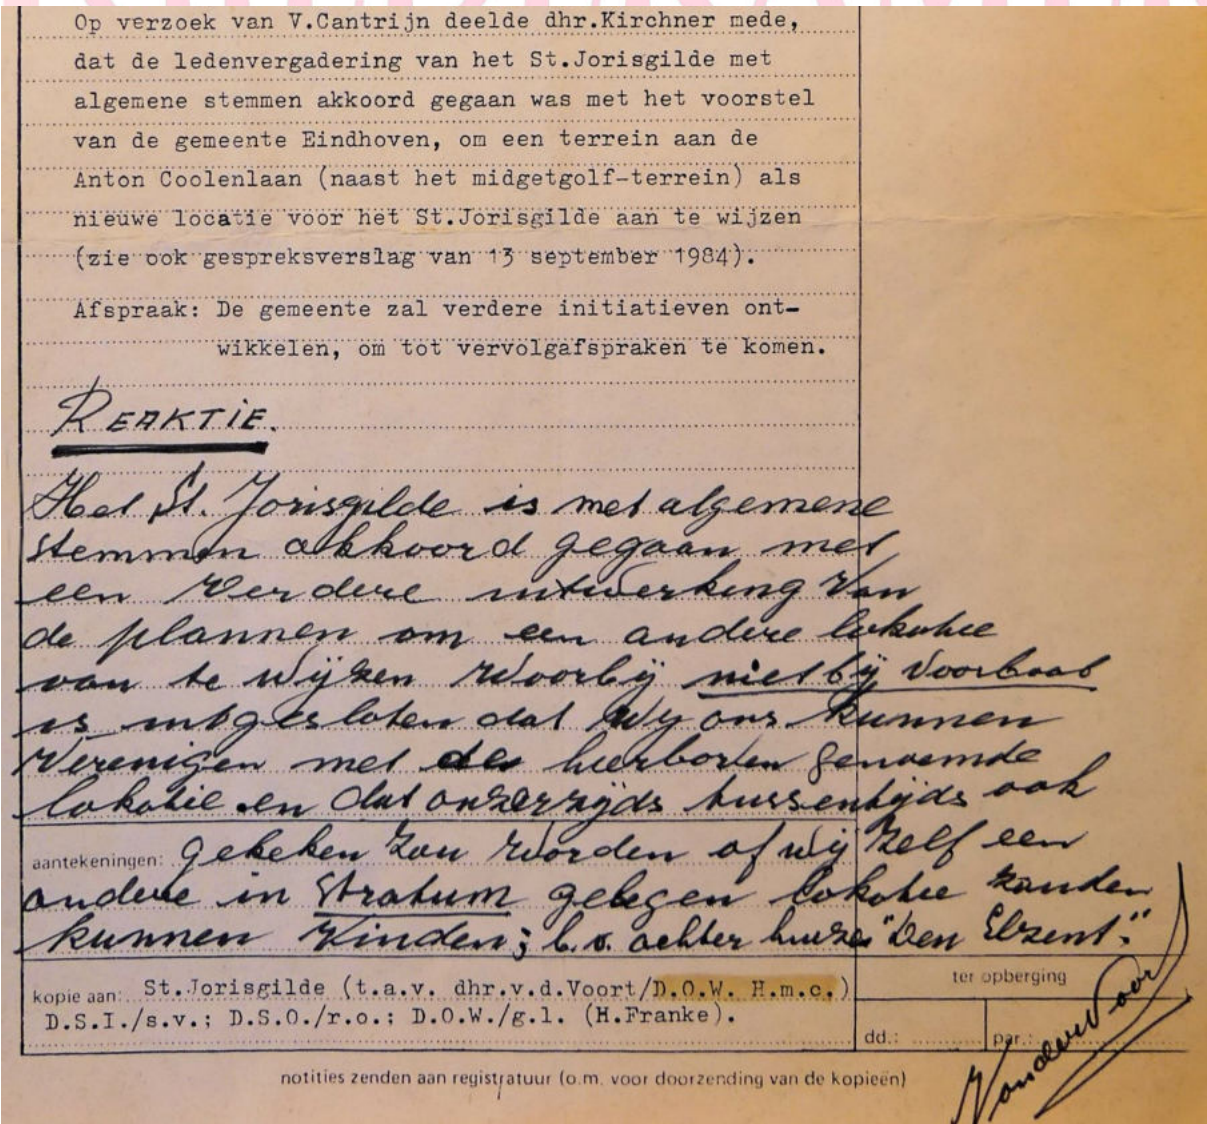 Op verzoek van V.Cantrijn deelde dhr.Kirchner mede,
dat de ledenvergadering van het St.Jorisgilde met
algemene stemmen akkoord gegaan was met het voorstel
van de gemeente Eindhoven, om een terrein aan de
Anton Coolenlaan (naast het midgetgolf-terrein) als
nieuwe locatie voor het St.Jorisgilde aan te wijzen
(zie ook gespreksverslag van 13 september 1984).
Afspraak: De gemeente zal verdere initiatieven ont-
wikkelen, om tot vervolgafspraken te komen.
REAKTIE.
Het St. Jorisgilde is met algemene
stemmen akkoord gegaan met
een verdere uitwerking van
de plannen om een andere lokatie
aan te wijzen waarbij niet bij voorbaat
is uitgesloten dat wij ons kunnen
verenigen met de hierboven genoemde
lokatie en dat onzerzijds tussentijds ook
aantekeningen: gekeken zou worden of wij zelf een
andere in Stratum gelegen lokatie zouden
kunnen vinden; b.v. achter huize "Den Elzent."
kopie aan: St.Jorisgilde (t.a.v. dhr.v.d.Voort/D.O.W. H.m.c.)
D.S.I./s.v.; D.S.O./r.o.; D.O.W./g.l. (H.Franke).
ter opberging
dd.: par.:
notities zenden aan registratuur (o.m. voor doorzending van de kopieën)